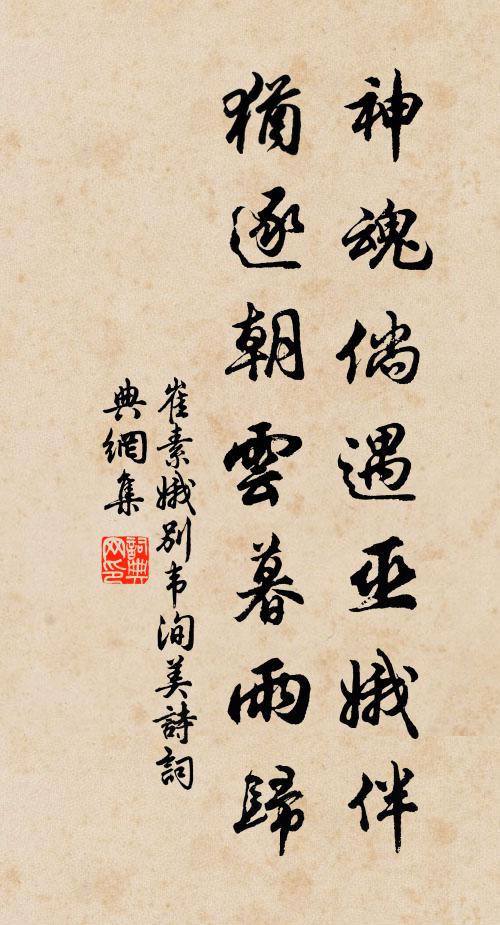 神魂倘遇巫娥伴
猶逐朝雲暮雨歸
崔素娥別韦洵美詩詞
典網集
詞典
网印